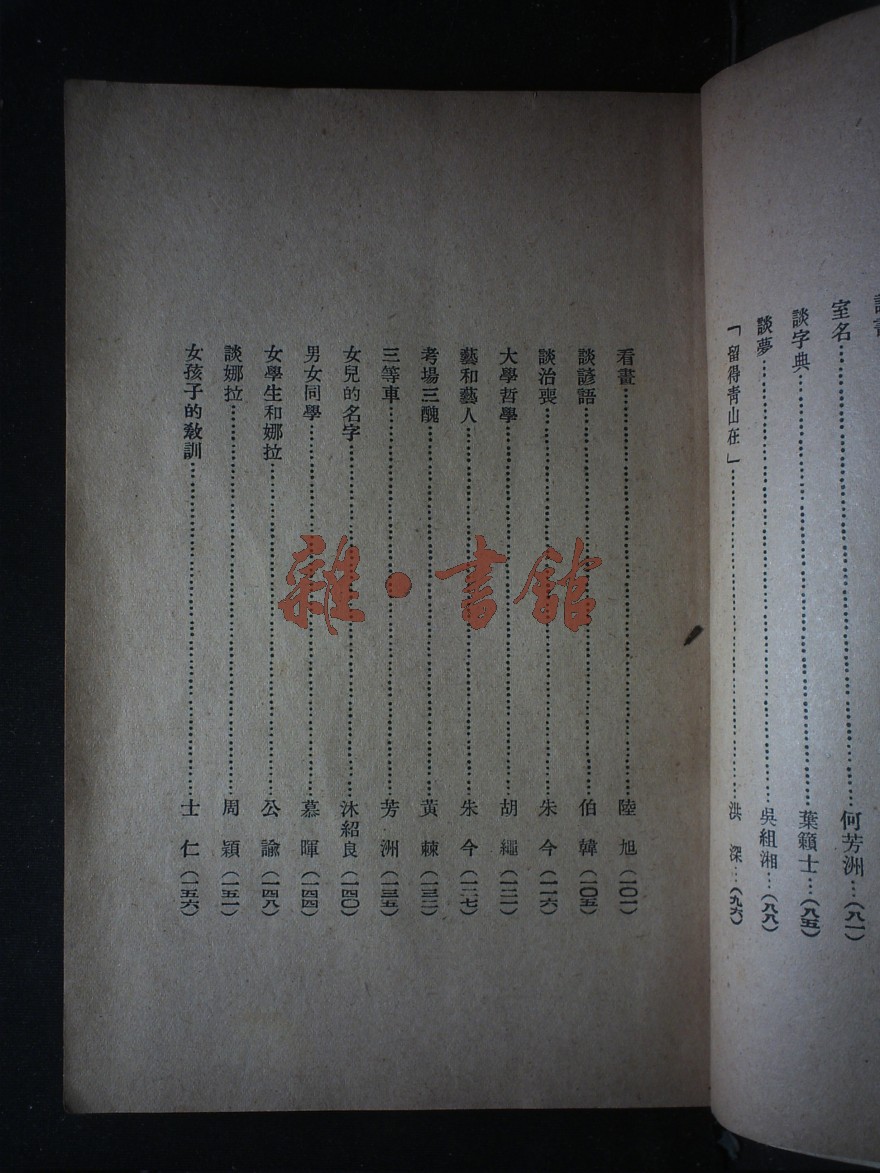 室名……何芳洲…(八一)
談字典……葉籟士…(八五)
談夢……吳組湘…(八八)
「留得青山在」……洪深…(九六)
看畫……陸旭(一〇一)
談諺語……伯韓(一〇五)
談治喪……朱今(一一六)
大學哲學……胡繩(一二一)
藝和藝人……朱今(一二七)
考場三醜……黃棘(一三二)
三等車……芳洲(一三五)
女兒的名字……沐紹良(一四〇)
男女同學……慕暉(一四四)
女學生和娜拉……公諭(一四八)
談娜拉……周穎(一五一)
女孩子的教訓……士仁(一五六)
雜·書館